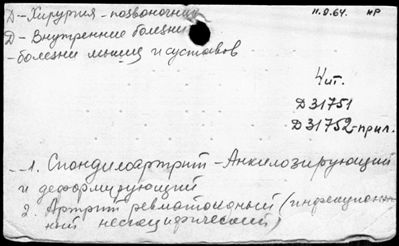 Д – Хирургия – позвоночник
11.9.64. НР
Д – Внутренние болезни
– болезни мышц и суставов
Чит.
Д 31751
Д 31752 – прил.
1. Спондилоартрит – Анкилозирующий
и деформирующий
2. Артрит ревматоидный (инфекцион-
ный неспецифический)